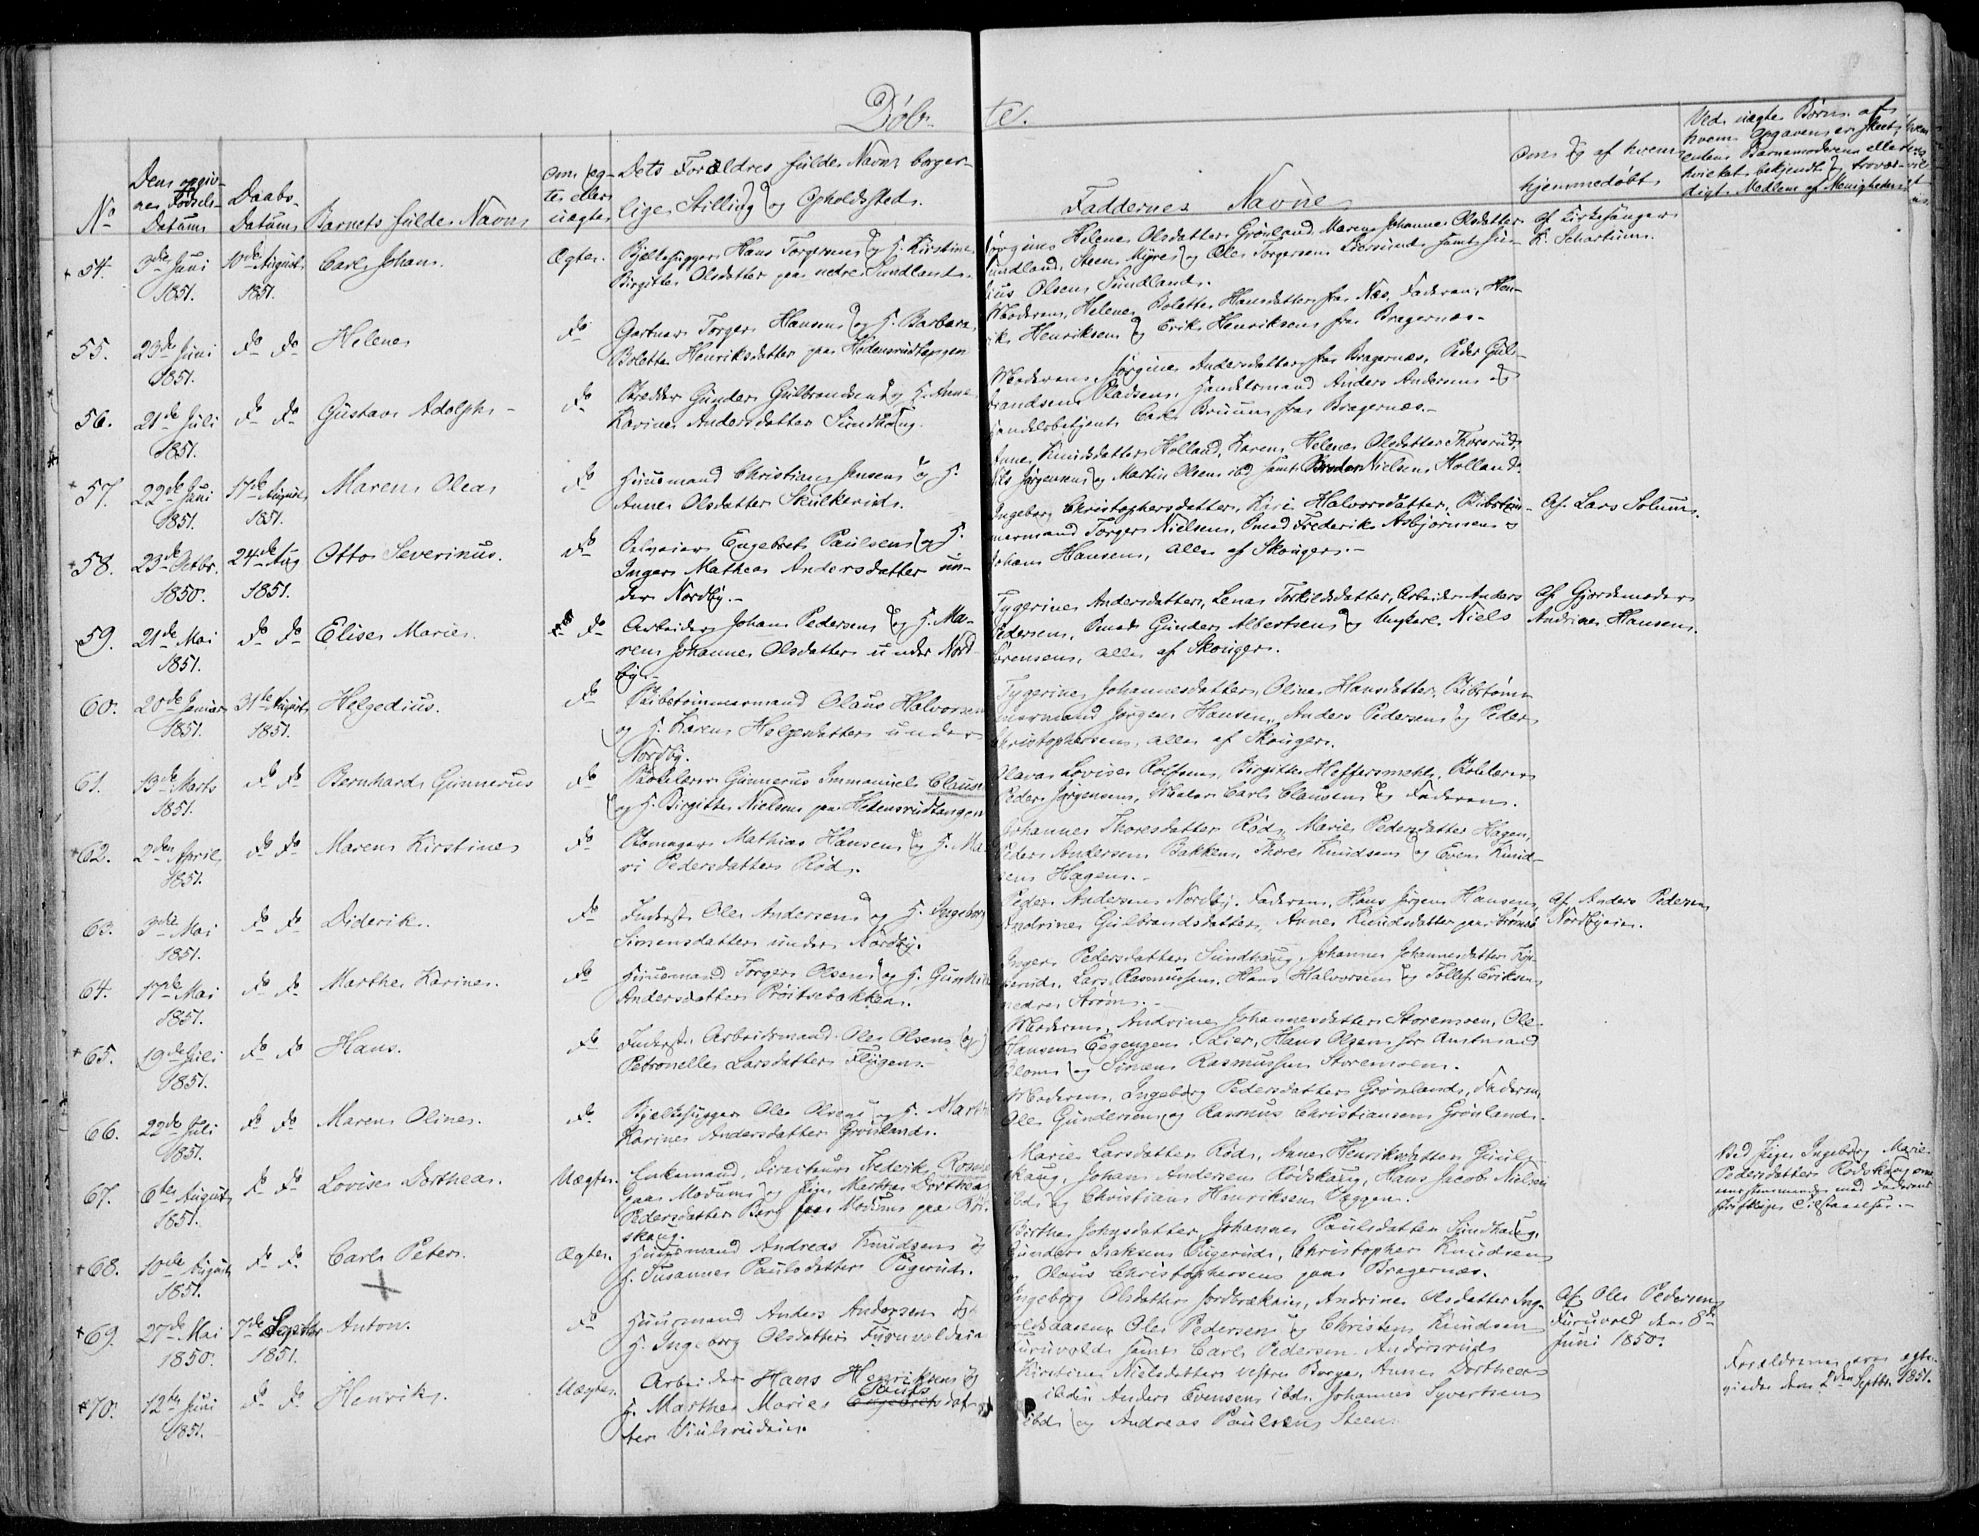 Døb-
te.
No
Dens opgiv-
ne Fødsels-
Datum
Daabs-
Datum
Barnets fulde Navn
Om æg-
te eller
uægte
Dets Forældres fulde Navn borger-
lige Stilling og Opholdssted.
Faddernes Navne
Om og af hvem
hjemmedøbt
Ved uægte Børn af
hvem Opgaven er skeet,
enten Barnemoderen eller
hvilket bekjendt og trovær-
digt Medlem af Menigheden
54. 3die Juni 10de August Carl Johan. Ægte. Hans Torgersen og H. Kirstine
1851. 1851. Birgitte Olsdatter paa nedre Sundland.
Helene Olsdatter Grønland, Maren Johanne Olsdatter
Sundland, Steen Myre og Ole Torgersen samt Ju-
lius Olsen Sundland.
af Kirkesanger
K. Schartum.
55. 23de Juni do do Helene do Gartner Torger Hansen og H. Barbara
1851. Bolette Henriksdatter paa Hedensrudtangen
Moderen, Helene Bolette Hansdatter fra Næs, Faderen, Hen-
rik Henriksen og Erik Henriksen fra Bragernæs.
56. 21de Juli do do Gustav Adolph do Gunder Gulbrandsen og H. Anne
1851. Karine Andersdatter Sundhaug.
Moderen, Jørgine Andersdatter fra Bragernæs, Peder Gul-
brandsen Pladsen, Handelsmand Anders Andersen og
Handelsbetjent Carl Bruun fra Bragernæs.
57. 22de Juni 17de August Maren Olea do Huusmand Christian Jensen og H.
1851. 1851. Anne Olsdatter Skulkerud.
Anne Knudsdatter Holland, Karen Helene Olsdatter Thorrud,
Nils Jørgensen og Martin Olsen ibd samt Nielsen Holland
58. 23de Octbr. 24de Aug Otto Severinus. do Engebret Paulsen og H.
1850. 1851. Inger Mathea Andersdatter un-
der Nordby.
Ingeborg Christophersdatter, Kari Halvorsdatter, Skibstøm-
mermand Torger Nielsen, Smed Frederik Asbjørnsen og
Johan Hansen, alle af Skouger.
Af Lars Solum.
59. 21de Mai do do Elise Marie. do Arbeider Johan Pedersen og H. Ma-
1851. ren Johanne Olsdatter under Nord-
by.
Tygerine Andersdatter, Lena Torkildsdatter, Arbeider Anders
Pedersen, Smed Gunder Albertsen og Ungkarl Niels
Sørensen, alle af Skouger.
Af Gjordemoder
Andrine Hansen.
60. 20de Januar 31te August Helgedius. do Skibstømmermand Olaus Halvorsen
1851. 1851. og H. Karen Helgesdatter under
Nordby.
Tygerine Johannesdatter, Oline Hansdatter, Skibstøm-
mermand Jørgen Hansen, Anders Pedersen og Peder
Christophersen, alle af Skouger.
61. 13de Marts do do Bernhard Gunnerus do Gunnerus Immanuel Clausen
1851. og H. Birgitte Nielsen paa Hedensrudtangen
Olava Lovise Rolfsen, Birgitte Peder Jørgensen, Maler Carl Clausen og Faderen.
62. 2den April do do Maren Kirstine do Skomager Mathias Hansen og H. Ma-
1851. ri Pedersdatter Rød.
Johanne Thoresdatter Rød, Marie Pedersdatter Hagen,
Peder Andersen Bakken, Thore Knudsen og Even Knud-
sen Hagen.
63. 3die Mai do do Diderik. do Inderst Ole Andersen og H. Ingeborg
1851. Simensdatter under Nordby.
Peder Andersen Nordby, Faderen, Hans Jørgen Hansen,
Andrine Gulbrandsdatter, Anne Knudsdatter paa Strømsø
Af Anders Pedersen
Nordbyeie.
64. 17de Mai do do Marthe Karine. do Huusmand Torger Olsen og H. Gunhild
1851. Andersdatter Prøitsebakken.
Inger Pedersdatter Sundhaug, Johanne Johannesdatter
Lars Rasmussen, Hans Halvorsen og Tollef Eriksen
nedre Strøm.
65. 19de Juli do do Hans. do Inderst, Arbeidsmand Ole Olsen og
1851. Petronelle Larsdatter Flugen.
Moderen, Andrine Johannesdatter Storemoen, Ole
Hansen Eegengen Lier, Hans Olsen for Amtmand
Blom og Simen Rasmussen Storemoen.
66. 22de Juli do do Maren Oline. do Ole Olsen og H. Marthe
1851. Karine Andersdatter Grønland.
Moderen, Ingeborg Pedersdatter Grønland, Faderen,
Ole Gundersen og Rasmus Christiansen Grønland.
67. 6te August do do Lovise Dorthea. Uægte. Enkemand, Directeur Frederik
1851. paa Modum og Pige Marthe Dorthea
Pedersdatter Berg fra Modum paa Rød-
skoug.
Marie Larsdatter Rød, Anne Henriksdatter
skaug, Johan Andersen Rødskaug, Hans Jacob Nielsen
ibd. og Christian Henriksen Uggen.
Ved Pige Ingeborg Marie
Pedersdatter Rødskoug over-
eensstemmende med Faderens
skriftlige Tilstaaelse.
68. 10de August do do Carl Peter. Ægte. Huusmand Andreas Knudsen og
1851. H. Susanne Paulsdatter Pugerud.
Birthe Johnsdatter, Johanne Paulsdatter Sundhaug,
Gunder Isaksen Pugerud, Christopher Knudsen
og Olaus Christophersen paa Bragernæs.
69. 27de Mai 7de Septbr Anton. do Huusmand Anders Andersen og
1850. 1851. H. Ingeborg Olsdatter Furuvoldeie
Ingeborg Olsdatter Jordbrækeie, Andrine Olsdatter Ing-
voldsaasen, Ole Pedersen og Christen Knudsen
Furuvold samt Carl Pedersen Andorsrud
Af Ole Pedersen
Furuvold den 8de
Juni 1850.
70. 12te Juni do do Henrik. Uægte. Arbeider Hans Henriksen og
1851. H. Marthe Marie Pouls Engebretsdat-
ter Viulsrudeie.
Kirstine Nielsdatter vestre Borge, Anne Dorthea
ibd. Anders Evensen ibd. Johannes Syvertsen
ibd. og Andreas Paulsen Steen.
Forældrene ere ægte-
viede den Septbr. 1851.